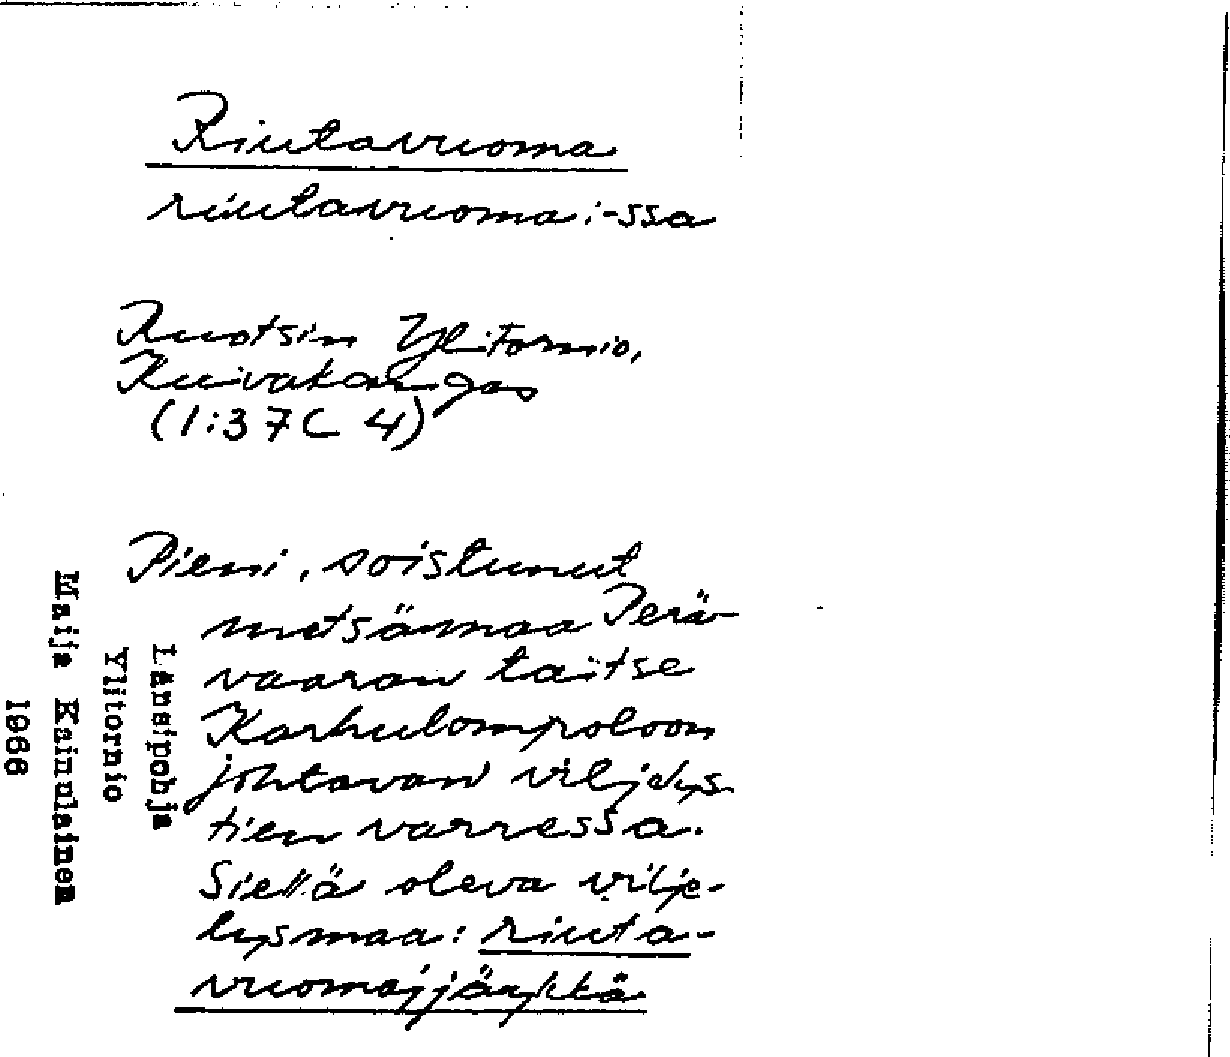 Riutavuoma
riutavuoma: -ssa
Ruotsin Ylitornio,
Kuivakangas
(1:37C 4)
Pieni, soistunut
metsämaa Perä-
vaaran taitse
Karhulompoloon
johtavan viljelys-
tien varressa.
Siellä oleva vilje-
lysmaa: riuta-
vuomajjänkkä
Länsipohja
Ylitornio
Maija Kainulainen
1966